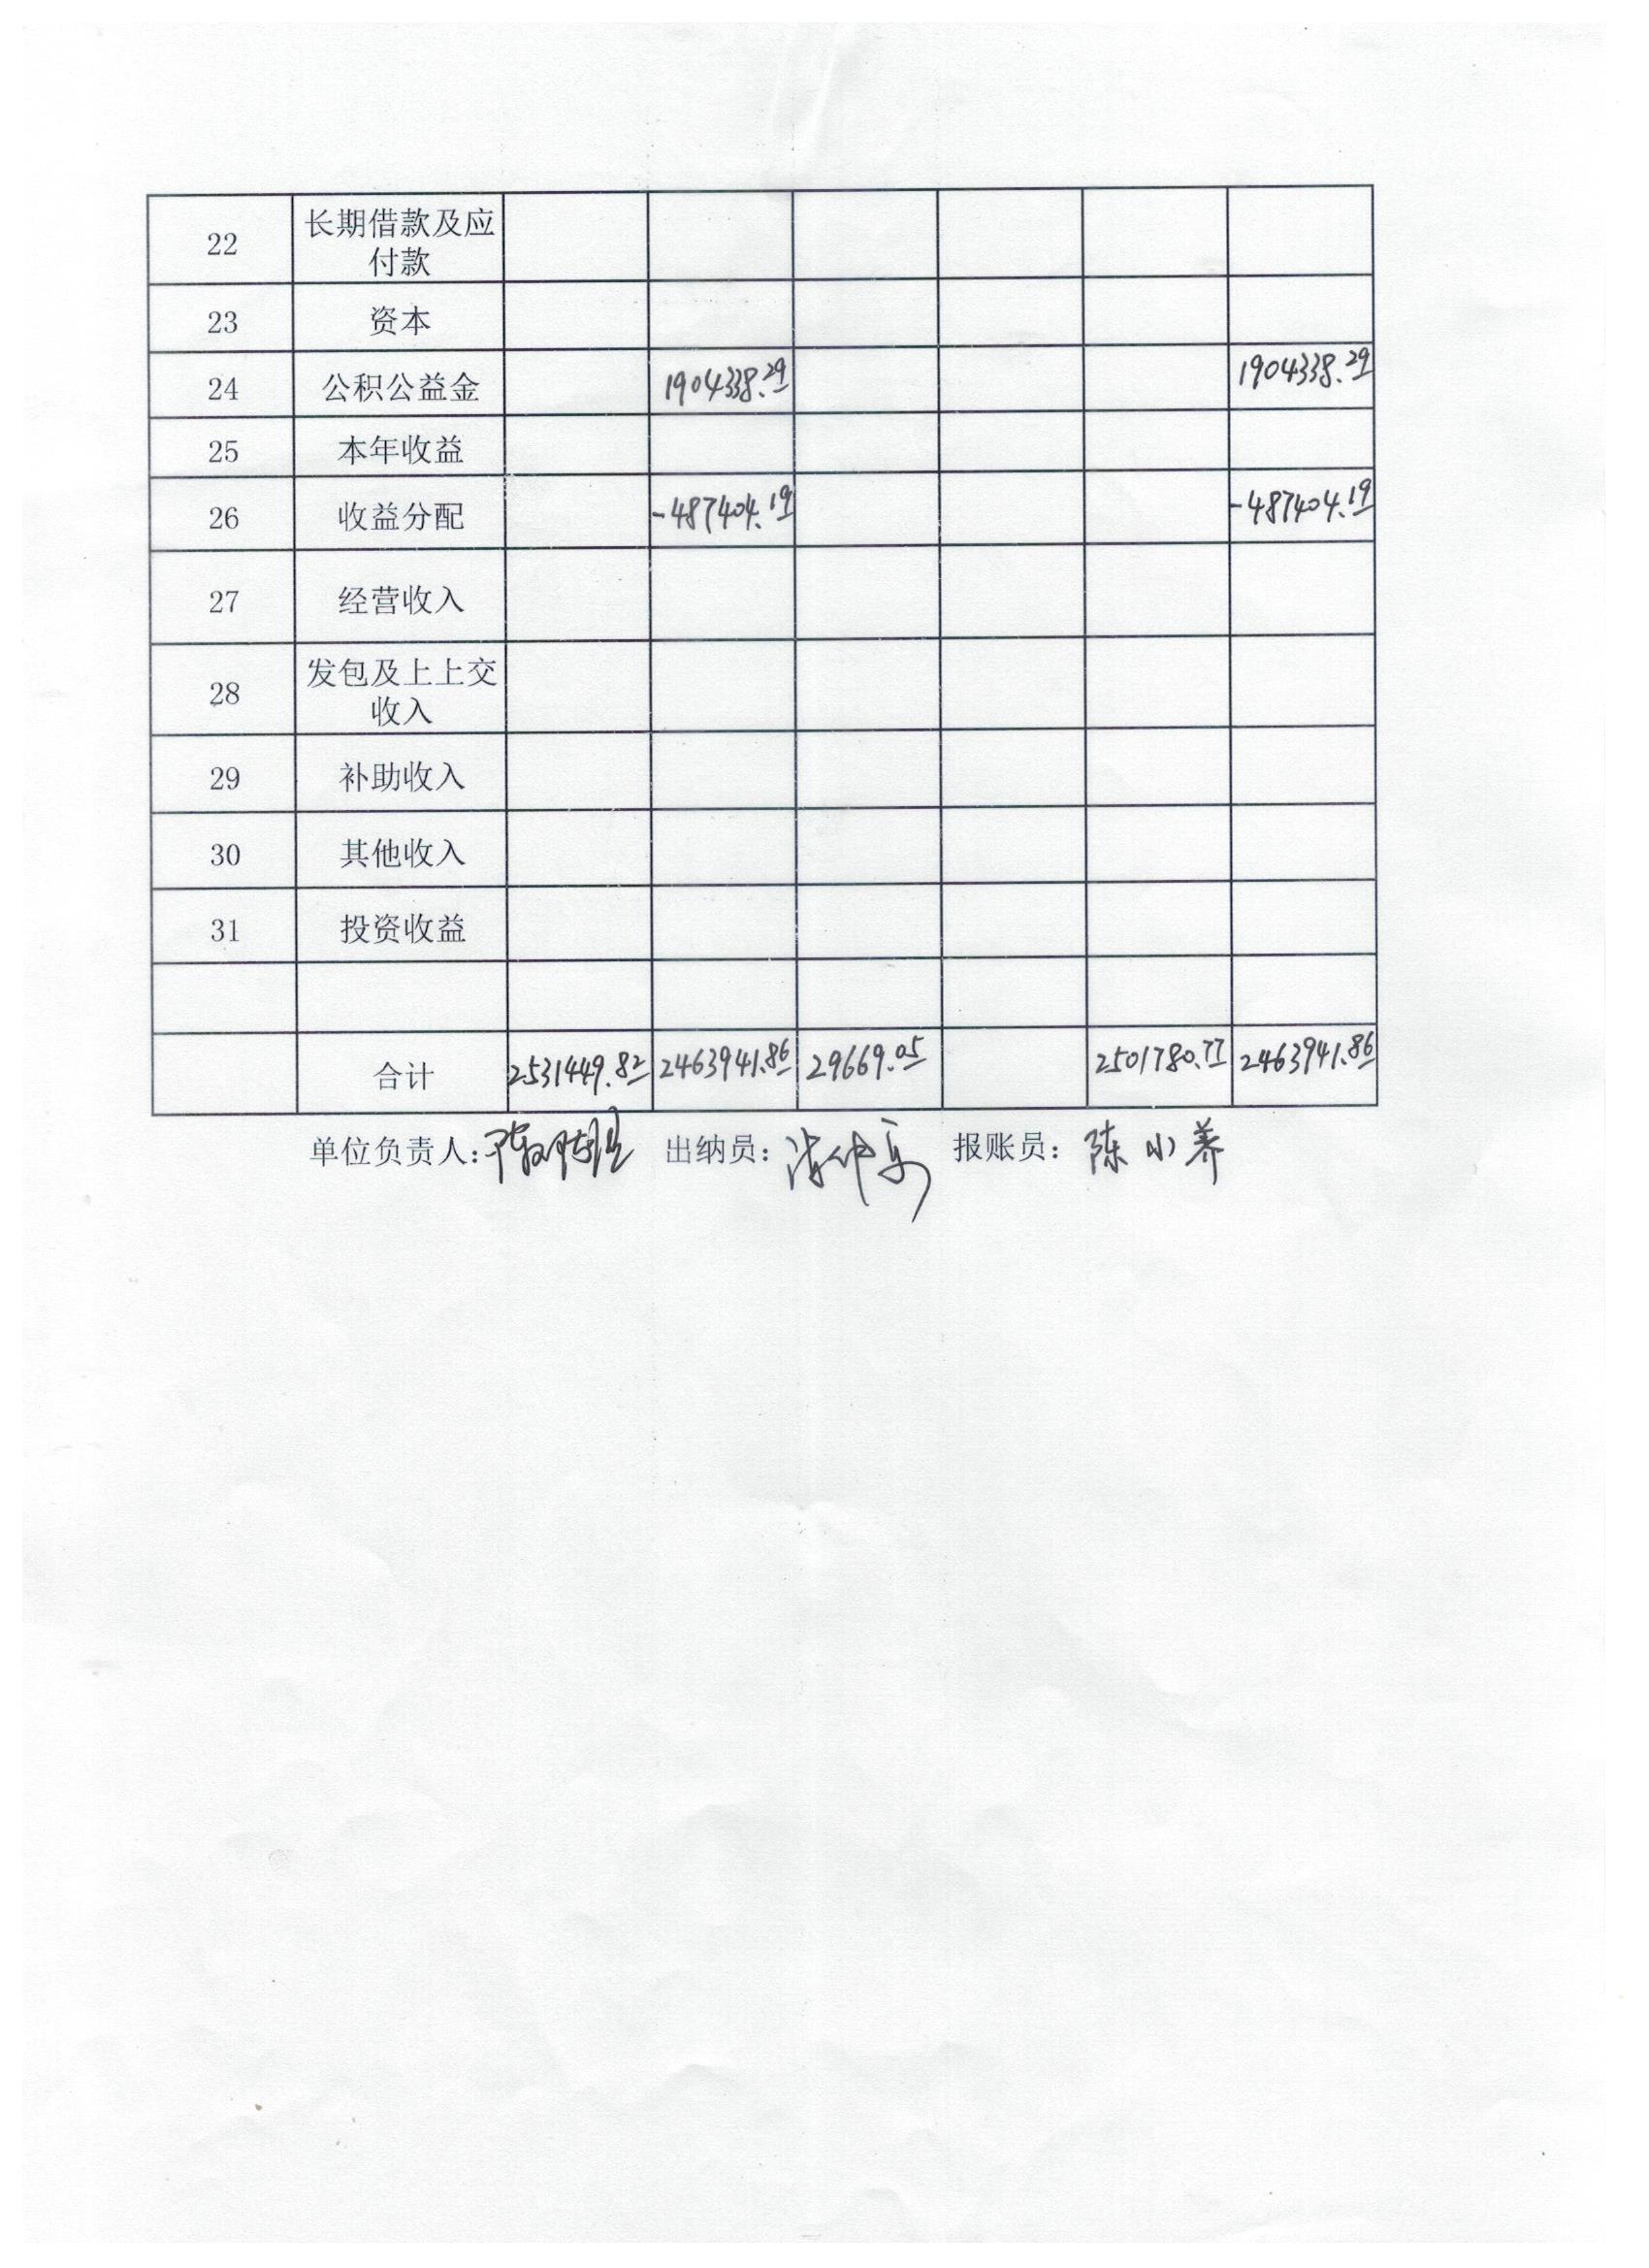 22 长期借款及应
付款
23 资本
24 公积公益金 1904338.29 1904338.29
25 本年收益
26 收益分配 -487404.19 -487404.19
27 经营收入
28 发包及上上交
收入
29 补助收入
30 其他收入
31 投资收益
合计 2531449.82 2463941.86 29669.05 2501780.77 2463941.86
单位负责人: 出纳员: 报账员: 陈小养